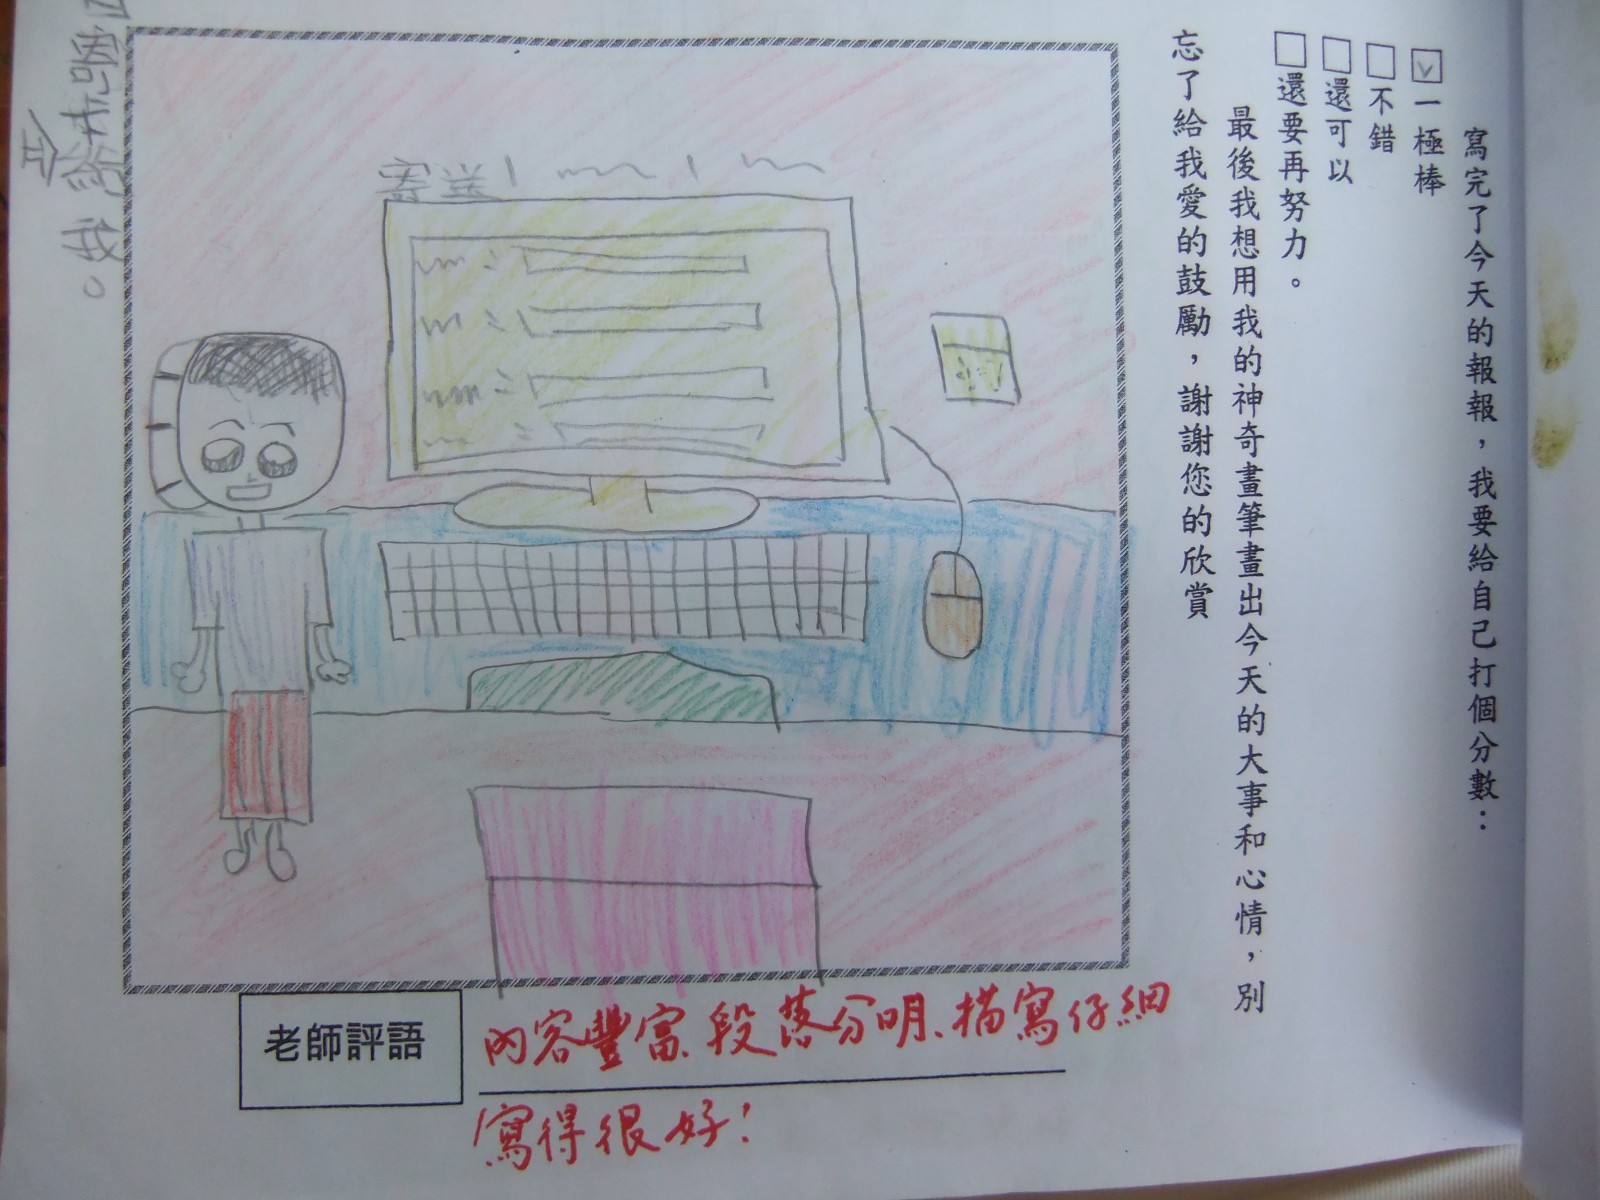 寫完了今天的報報，我要給自己打個分數：
☑一極棒
□不錯
□還可以
□還要再努力。
最後我想用我的神奇畫筆畫出今天的大事和心情，別
忘了給我愛的鼓勵，謝謝您的欣賞
寄送
老師評語
內容豐富、段落分明、描寫仔細
寫得很好！